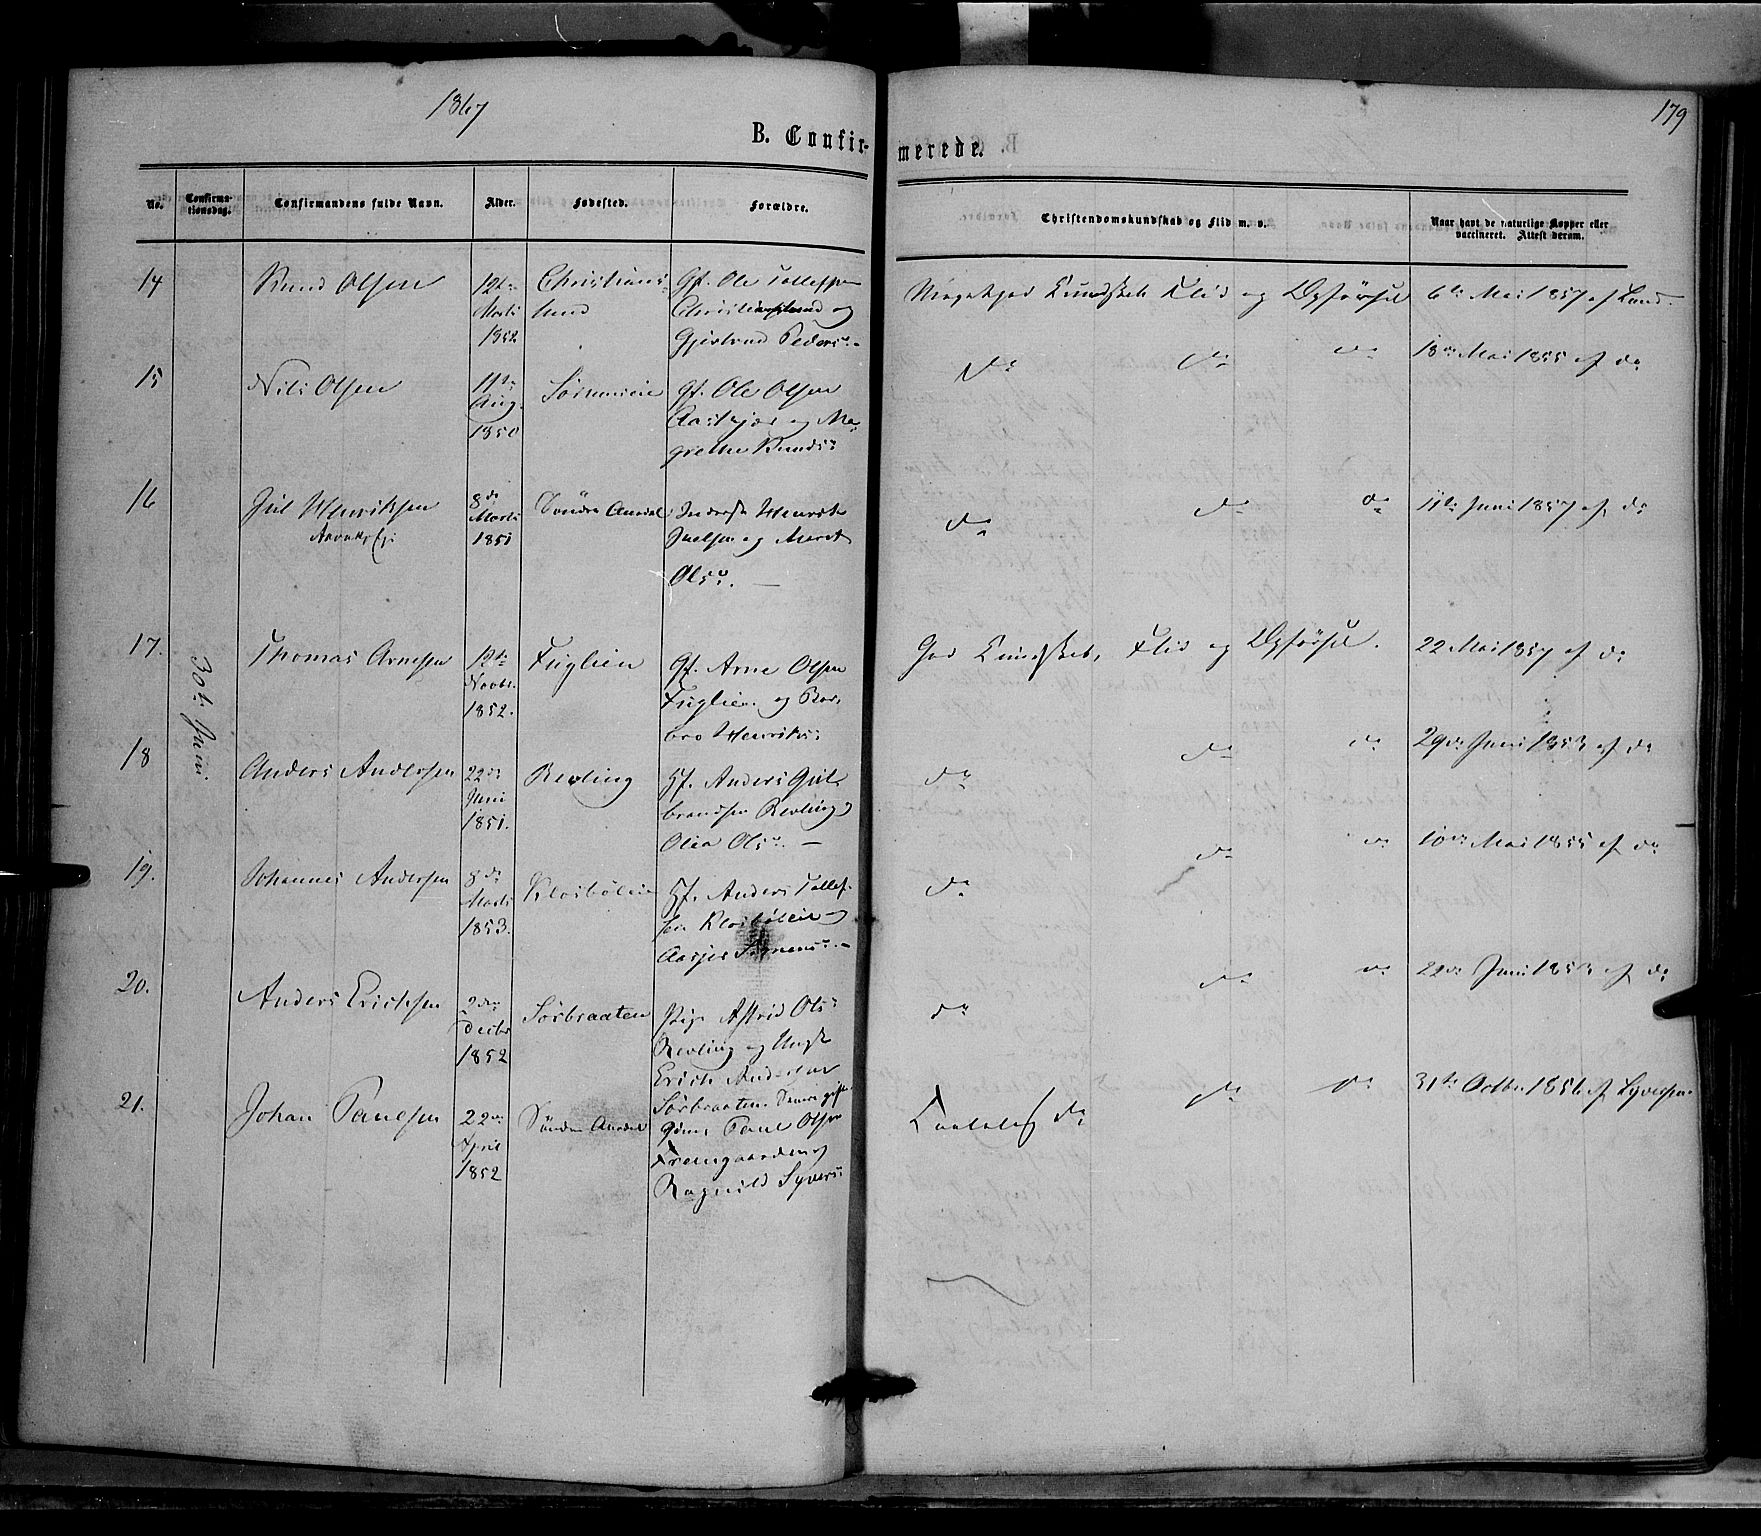 1867
179
B. Confirmerede.
No.
Confirmationsdag.
Confirmandens fulde Navn.
Alder.
Fødested.
Forældre.
Christendomskundskab og Flid m. v.
Naar havt de naturlige Kopper eller vaccineret. Attest derom.
30te Juni
14
Knud Olsen
12te Marts 1852
Christianslund
Gf. Ole Tollefsen
Christianslund og
Gjertrud Peders
Meget god Kundskab Flid og Opførsel
6te Mai 1857 af Lund
15
Nils Olsen
11te Aug. 1850
Gf. Ole Olsen
og Ma-
grethe Knuds
do do do
18de Mai 1855 af do
16
Juul Henriksen
8de Marts 1851
Søndre Aurdal
Inderst Henrik
Juelsen og Marit
Ols
do do do
11te Juni 1857 af do
17.
Thomas Arnesen
12te Novbr. 1852.
Fuglien
Gf. Arne Olsen
Fuglien og Bar-
bro Henriks
God Kundskab, Flid og Opførsel.
22 Mai 1857 af do
18
Anders Andersen
22de Juni 1851.
Revling
Hf. Anders Gul-
brandsen Revling
Olea Ols
do do do
29de Juni 1853 af do
19.
Johannes Andersen
8de Marts 1853.
Klosbøleie
Hf. Anders Tollef-
sen Klosbøleie
do do do
10de Mai 1855 af do
20.
Anders Ericksen
2den Decbr 1852
Sørbraaten
Pige Astrid Ols
Revling og Ungk
Erick Andersen
Sørbraaten
do do do
Juni 1853 af do
21.
Johan Paulsen
22de April 1852
Søndre Aurdal
Gdmd. Paul Olsen
Fremgaarden og
Ragnild Syvers
do do do
31te Octbr 1856 af Syversen